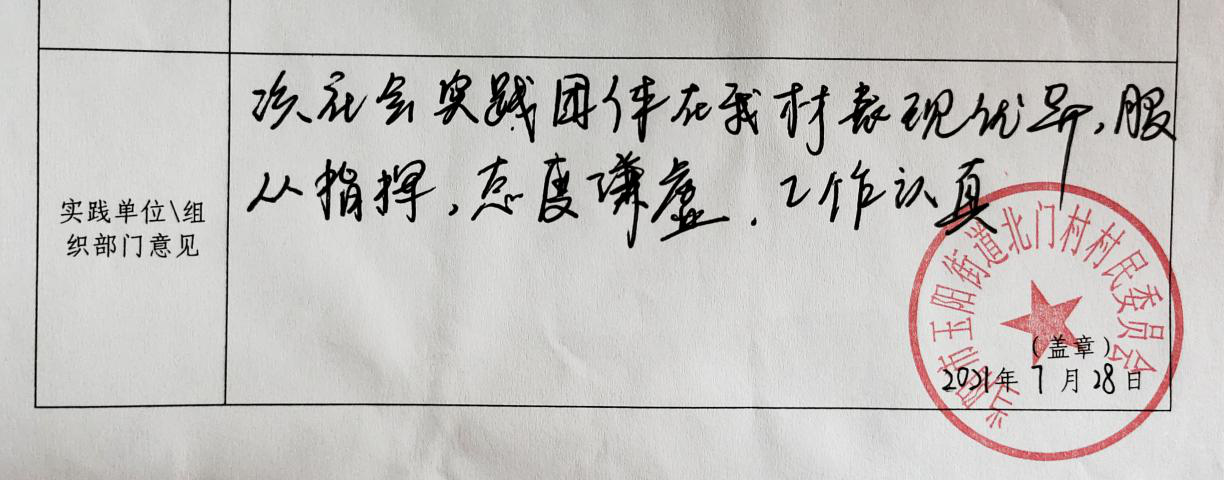 次社会实践团体在我村表现优异,服
从指挥,态度谦虚,工作认真
实践单位\组
织部门意见
当阳市玉阳街道北门村村民委员会
(盖章)
2021年7月28日